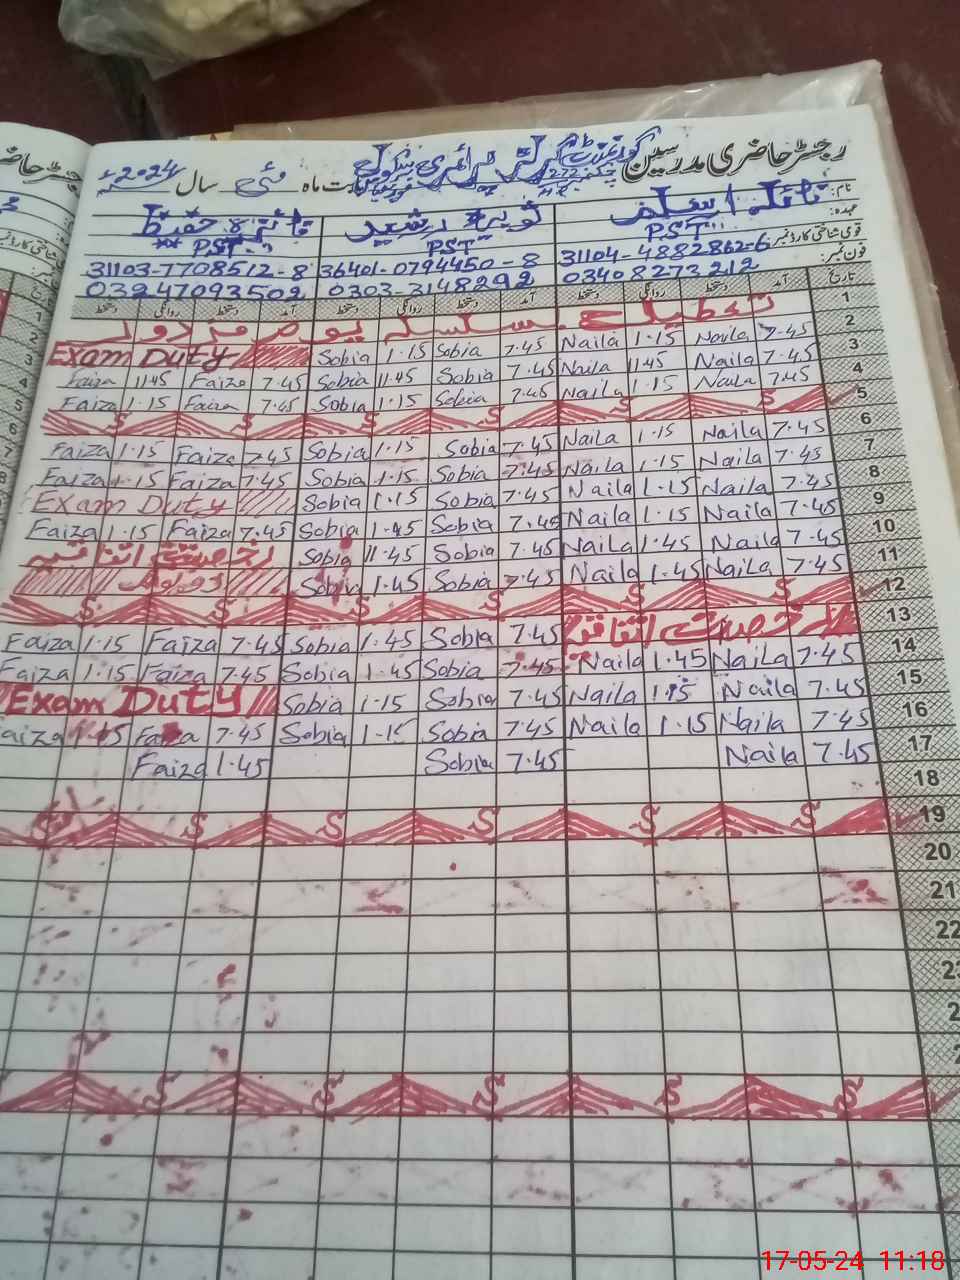 رجسٹر حاضری مدرسین گورنمنٹ گرلز پرائمری سکول بابت ماہ مئی سال 2024ء
نام: نائلہ اسلم ثوبیہ رشید فائزہ حفیظ
عہدہ: PST PST PST
قومی شناختی کارڈ نمبر 31104-4882862-6 36401-0794450-8 31103-7708512-8
فون نمبر: 03408273212 0303-3148292 03247093502
تاریخ آمد دستخط روانگی دستخط آمد دستخط روانگی دستخط آمد دستخط روانگی دستخط
1 تعطیل بسلسلہ یوم مزدور
2 7.45 Naila 1.15 Naila 7.45 Sobia 1.15 Sobia Exam Duty
3 7.45 Naila 11.45 Naila 7.45 Sobia 11.45 Sobia 7.45 Faiza 11.45 Faiza
4 7.45 Naila 1.15 Naila 7.45 Sobia 1.15 Sobia 7.45 Faiza 1.15 Faiza
5 S S S S S S
6 7.45 Naila 1.15 Naila 7.45 Sobia 1.15 Sobia 7.45 Faiza 1.15 Faiza
7 7.45 Naila 1.15 Naila 7.45 Sobia 1.15 Sobia 7.45 Faiza 1.15 Faiza
8 7.45 Naila 1.15 Naila 7.45 Sobia 1.15 Sobia Exam Duty
9 7.45 Naila 1.15 Naila 7.45 Sobia 1.45 Sobia 7.45 Faiza 1.15 Faiza
10 7.45 Naila 1.45 Naila 7.45 Sobia 11.45 Sobia رخصت اتفاقیہ
11 7.45 Naila 1.45 Naila 7.45 Sobia 1.45 Sobia دو یوم
12 S S S S S S
13 رخصت اتفاقیہ 7.45 Sobia 1.45 Sobia 7.45 Faiza 1.15 Faiza
14 7.45 Naila 1.45 Naila 7.45 Sobia 1.45 Sobia 7.45 Faiza 1.15 Faiza
15 7.45 Naila 1.15 Naila 7.45 Sobia 1.15 Sobia Exam Duty
16 7.45 Naila 1.15 Naila 7.45 Sobia 1.15 Sobia 7.45 Faiza 1.15 Faiza
17 7.45 Naila 7.45 Sobia 1.45 Faiza
18
19 S S S S S
20
21
22
S S S S
17-05-24 11:18